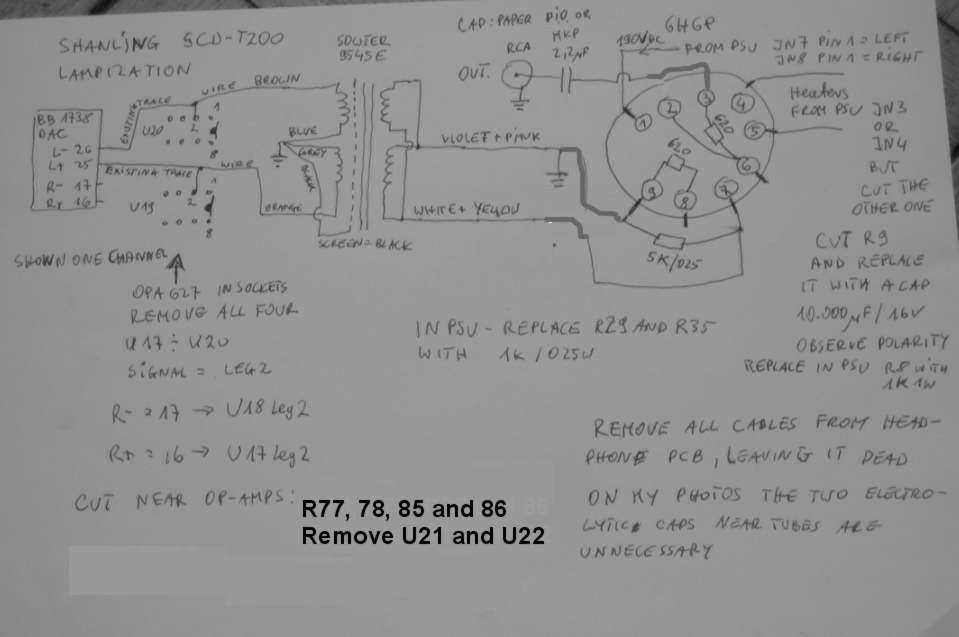 SHANLING SCD-T200
LAMPIZATION
SOWTER
9545E
CAP: PAPER PIO OR
MKP
2,2µF
RCA
OUT.
190VDC
FROM PSU JN7 PIN1 = LEFT
JN8 PIN1 = RIGHT
Heaters
FROM PSU JN3
OR
JN4
BUT
CUT THE
OTHER ONE
CUT R9
AND REPLACE
IT WITH A CAP
10.000µF/16V
OBSERVE POLARITY
REPLACE IN PSU R8 WITH
1K 1W
BB 1738
DAC
L- 26
L+ 25
R- 17
R+ 16
EXISTING TRACE
WIRE BROWN
U20
1
2
8
EXISTING TRACE
WIRE
U19
1
2
8
BLUE
GREY
BLACK
ORANGE
SCREEN = BLACK
VIOLET + PINK
WHITE + YELLOW
6H6P
1
2
3
4
5
6
7
8
9
620
620
5K/025
SHOWN ONE CHANNEL
OPA627 IN SOCKETS
REMOVE ALL FOUR
U17 ÷ U20
SIGNAL = LEG2
R- = 17 → U18 Leg2
R+ = 16 → U17 Leg2
CUT NEAR OP-AMPS:
R77, 78, 85 and 86
Remove U21 and U22
IN PSU - REPLACE R29 AND R35
WITH 1K/025W
REMOVE ALL CABLES FROM HEAD-
PHONE PCB, LEAVING IT DEAD
ON MY PHOTOS THE TWO ELECTRO-
LYTIC CAPS NEAR TUBES ARE
UNNECESSARY